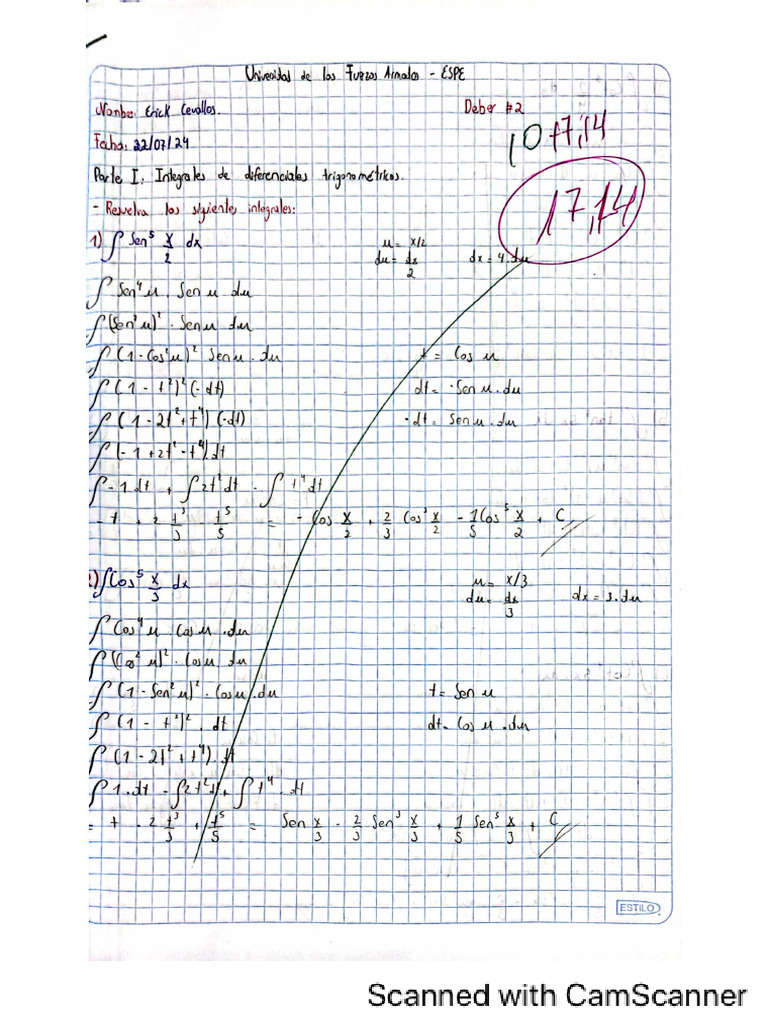 Universidad de las Fuerzas Armadas - ESPE
Nombre: Erick Cevallos.
Deber #2
Fecha: 22/07/24
10 17,14
17,14
Parte I: Integrales de diferenciales trigonométricos.
- Resuelva las siguientes integrales:
1) ∫ Sen⁵ x/2 dx
u = x/2
du = dx/2
dx = 4.du
∫ Sen⁴ u . Sen u . du
∫ (Sen² u)² . Sen u du
∫ (1 - Cos² u)² Sen u . du
t = Cos u
∫ (1 - t²)² (-dt)
dt = -Sen u . du
∫ (1 - 2t² + t⁴) (-dt)
-dt = Sen u . du
∫ (-1 + 2t² - t⁴) dt
∫ -1 dt + ∫ 2t² dt - ∫ t⁴ dt
- t + 2 t³/3 - t⁵/5 = - Cos x/2 + 2/3 Cos³ x/2 - 1/5 Cos⁵ x/2 + C
2) ∫ Cos⁵ x/3 dx
u = x/3
du = dx/3
dx = 3.du
∫ Cos⁴ u Cos u . du
∫ (Cos² u)² . Cos u du
∫ (1 - Sen² u)² . Cos u . du
t = Sen u
∫ (1 - t²)² . dt
dt = Cos u . du
∫ (1 - 2t² + t⁴) . dt
∫ 1.dt - ∫ 2t² dt + ∫ t⁴ . dt
= t - 2 t³/3 + t⁵/5 = Sen x/3 - 2/3 Sen³ x/3 + 1/5 Sen⁵ x/3 + C
ESTILO
Scanned with CamScanner